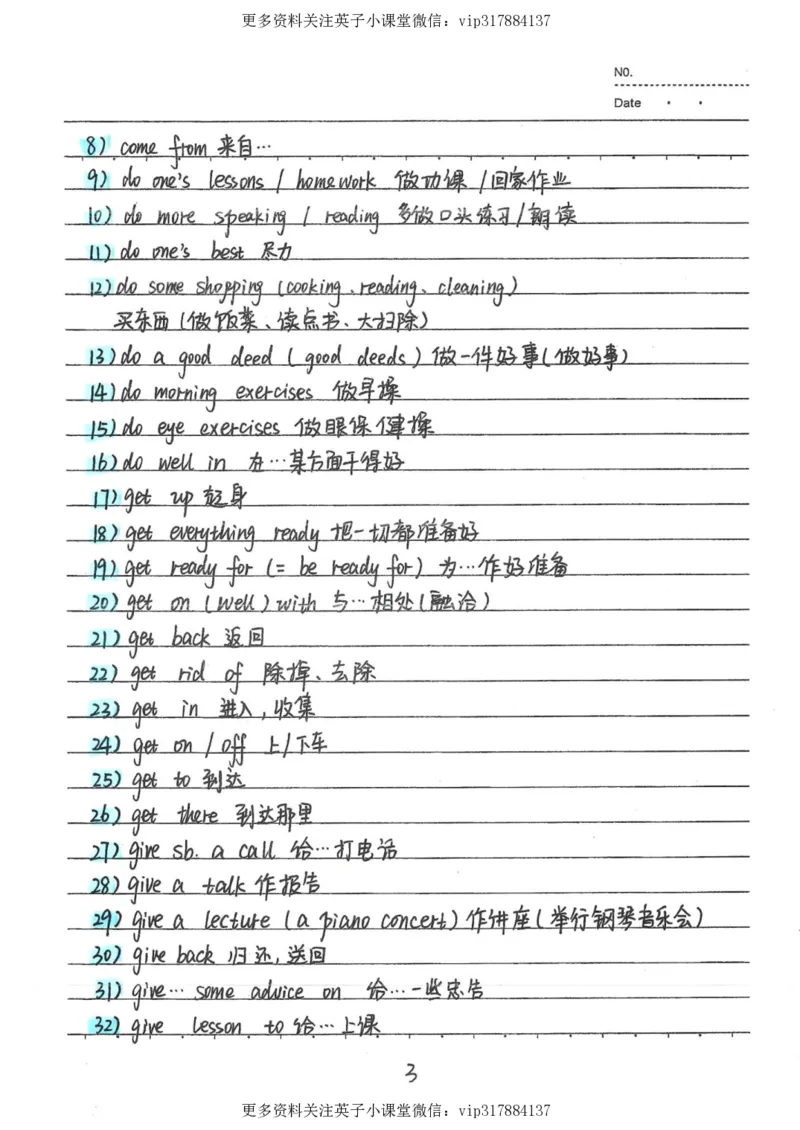 更多资料关注英子小课堂微信：vip317884137
NO.
Date
8) come from 来自…
9) do one's lessons / homework 做功课 / 回家作业
10) do more speaking / reading 多做口头练习/朗读
11) do one's best 尽力
12) do some shopping (cooking、reading、cleaning)
买东西(做饭菜、读点书、大扫除)
13) do a good deed (good deeds) 做一件好事(做好事)
14) do morning exercises 做早操
15) do eye exercises 做眼保健操
16) do well in 在…某方面干得好
17) get up 起身
18) get everything ready 把一切都准备好
19) get ready for (= be ready for) 为…作好准备
20) get on (well) with 与…相处(融洽)
21) get back 返回
22) get rid of 除掉、去除
23) get in 进入,收集
24) get on / off 上/下车
25) get to 到达
26) get there 到达那里
27) give sb. a call 给…打电话
28) give a talk 作报告
29) give a lecture (a piano concert) 作讲座(举行钢琴音乐会)
30) give back 归还,送回
31) give… some advice on 给…一些忠告
32) give lesson to 给…上课
3
更多资料关注英子小课堂微信：vip317884137